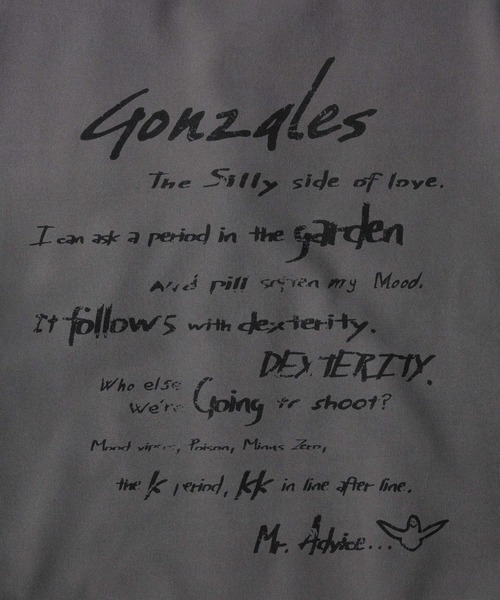 Gonzales
The Silly side of love.
I can ask a period in the garden
And pill my Mood.
It follows with dexterity.
DEXTERITY.
Who else
We're Going to shoot?
Mood Poison, Minus Zero,
the k period, kk in line after line.
Mr. Advice...